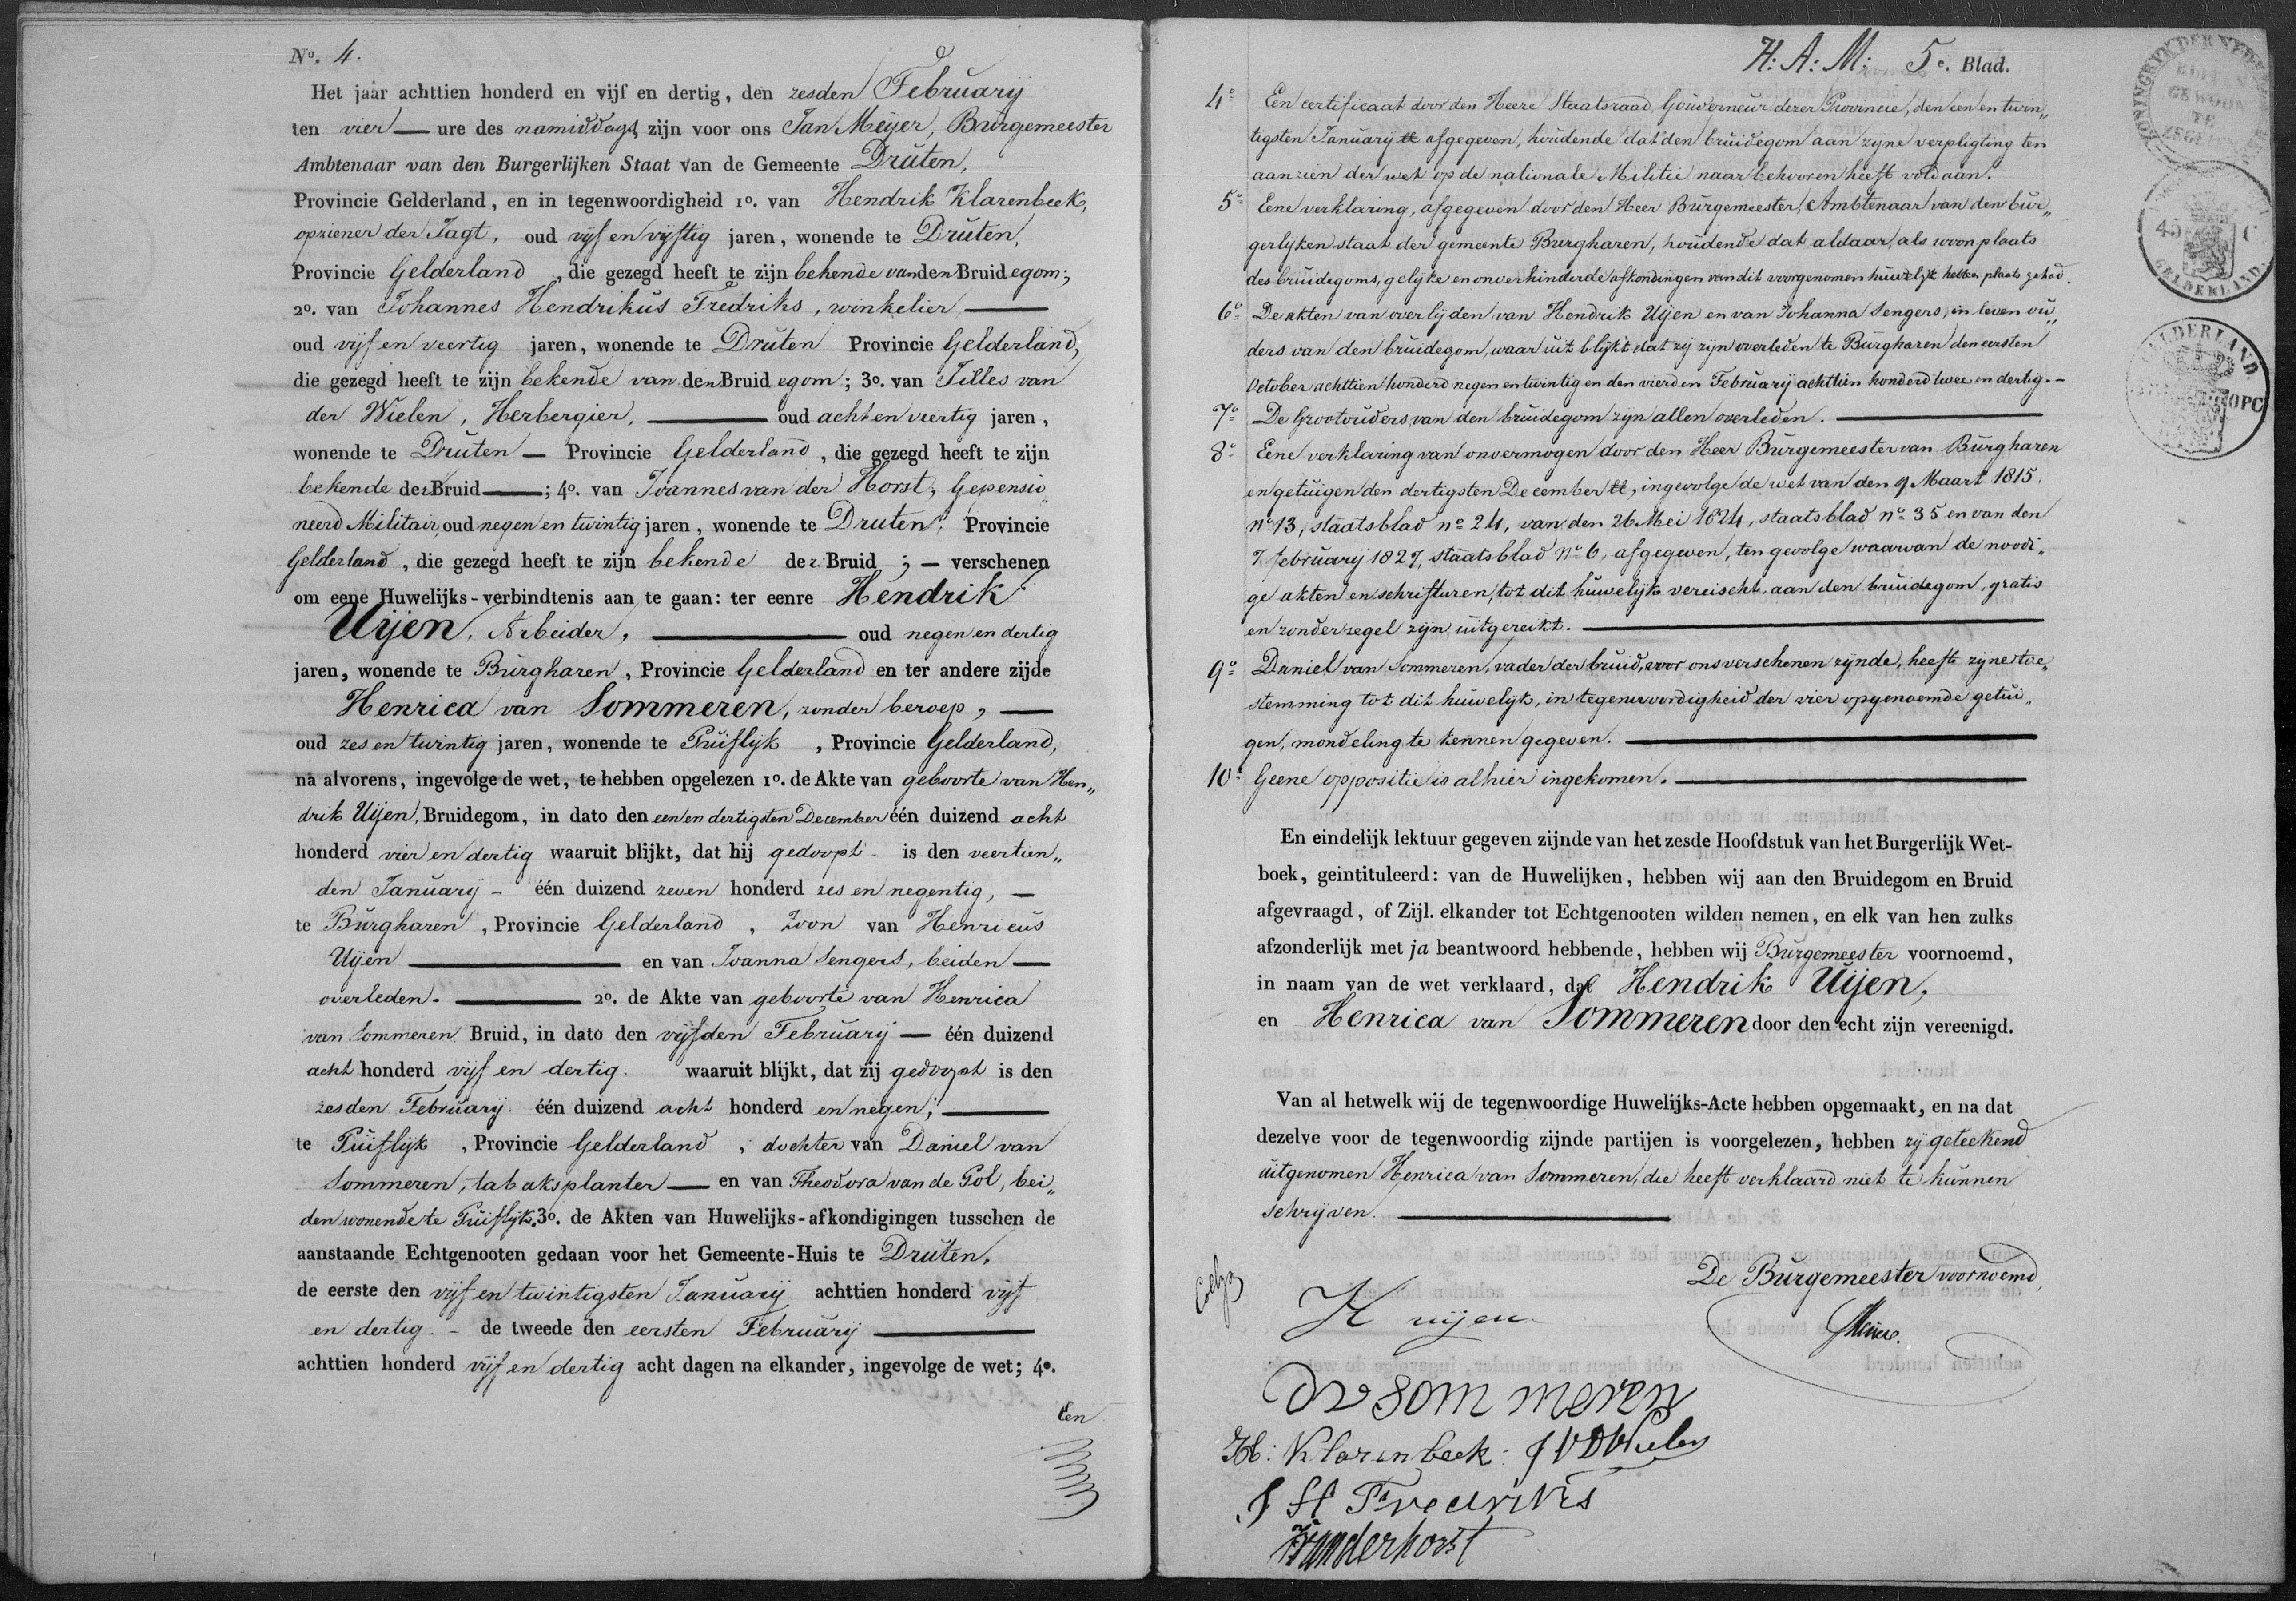 No. 4.
Het jaar achttien honderd en vijf en dertig, den zesden Februarij
ten vier ure des namiddags, zijn voor ons Jan Meijer, Burgemeester
Ambtenaar van den Burgerlijken Staat van de Gemeente Druten,
Provincie Gelderland, en in tegenwoordigheid 1o. van Hendrik Klarenbeek,
opziener der Jagt, oud vijf en vijftig jaren, wonende te Druten,
Provincie Gelderland, die gezegd heeft te zijn bekende van den Bruidegom;
2o. van Johannes Hendrikus Fredriks, winkelier
oud vijf en veertig jaren, wonende te Druten Provincie Gelderland,
die gezegd heeft te zijn bekende van den Bruidegom; 3o. van Jilles van
der Wielen, Herbergier, oud acht en veertig jaren,
wonende te Druten Provincie Gelderland, die gezegd heeft te zijn
bekende der Bruid; 4o. van Joannes van der Horst, Gepensio
neerd Militair, oud negen en twintig jaren, wonende te Druten, Provincie
Gelderland, die gezegd heeft te zijn bekende der Bruid; verschenen
om eene Huwelijks-verbindtenis aan te gaan: ter eenre Hendrik
Uijen, Arbeider, oud negen en dertig
jaren, wonende te Burgharen, Provincie Gelderland en ter andere zijde
Henrica van Sommeren, zonder beroep,
oud zes en twintig jaren, wonende te Puiflijk, Provincie Gelderland,
na alvorens, ingevolge de wet, te hebben opgelezen 1o. de Akte van geboorte van Hen„
drik Uijen, Bruidegom, in dato den een en dertigsten December één duizend acht
honderd vier en dertig waaruit blijkt, dat hij gedoopt is den veertien„
den Januarij één duizend zeven honderd zes en negentig,
te Burgharen, Provincie Gelderland, zoon van Henricus
Uijen en van Joanna Sengers, beiden
overleden. 2o. de Akte van geboorte van Henrica
van Sommeren Bruid, in dato den vijfden Februarij één duizend
acht honderd vijf en dertig. waaruit blijkt, dat zij gedoopt is den
zesden Februarij één duizend acht honderd en negen;
te Puiflijk, Provincie Gelderland, dochter van Daniel van
Sommeren, tabaksplanter en van Theodora van de Pol, bei„
den wonende te Puiflijk. 3o. de Akten van Huwelijks-afkondigingen tusschen de
aanstaande Echtgenooten gedaan voor het Gemeente-Huis te Druten,
de eerste den vijf en twintigsten Januarij achttien honderd vijf
en dertig - de tweede den eersten Februarij
achttien honderd vijf en dertig acht dagen na elkander, ingevolge de wet; 4o.
Een
H: A: M: 5e. Blad.
4o Een certificaat door den Heere Staatsraad Gouverneur dezer Provincie, den een en twin„
tigsten Januarij ll afgegeven, houdende dat den bruidegom aan zijne verpligting ten
aanzien der wet op de nationale Militie naar behooren heeft voldaan.
5o Eene verklaring, afgegeven door den Heer Burgemeester, Ambtenaar van den bur„
gerlijken staat der gemeente Burgharen, houdende dat aldaar, als woonplaats
des bruidegoms, gelijke en onverhinderde afkondingen van dit voorgenomen huwelijk hebben plaats gehad.
6o De akten van overlijden van Hendrik Uijen en van Johanna Sengers, in leven ou„
ders van den bruidegom, waar uit blijkt dat zij zijn overleden te Burgharen den eersten
October achttien honderd negen en twintig en den vierden Februarij achttien honderd twee en dertig.
7o De Grootouders van den bruidegom zijn allen overleden.
8o Eene verklaring van onvermogen door den Heer Burgemeester van Burgharen
en getuigen den dertigsten December ll, ingevolge de wet van den 9 Maart 1815.
no 13, staatsblad no 24, van den 26 Mei 1824, staatsblad no 35 en van den
7 februarij 1827, staatsblad No 6, afgegeven, ten gevolge waarvan de noodi„
ge akten en schrifturen, tot dit huwelijk vereischt, aan den bruidegom, gratis
en zonder zegel zijn uitgereikt.
9o Daniel van Sommeren, vader der bruid, voor ons verschenen zijnde, heeft zijne toe„
stemming tot dit huwelijk, in tegenwoordigheid der vier opgenoemde getui„
gen, mondeling te kennen gegeven.
10o Geene oppositie is alhier ingekomen.
En eindelijk lektuur gegeven zijnde van het zesde Hoofdstuk van het Burgerlijk Wet-
boek, geintituleerd: van de Huwelijken, hebben wij aan den Bruidegom en Bruid
afgevraagd, of Zijl. elkander tot Echtgenooten wilden nemen, en elk van hen zulks
afzonderlijk met ja beantwoord hebbende, hebben wij Burgemeester voornoemd,
in naam van de wet verklaard, dat Hendrik Uijen,
en Henrica van Sommeren door den echt zijn vereenigd.
Van al hetwelk wij de tegenwoordige Huwelijks-Acte hebben opgemaakt, en na dat
dezelve voor de tegenwoordig zijnde partijen is voorgelezen, hebben zij geteekend
uitgenomen Henrica van Sommeren, die heeft verklaard niet te kunnen
schrijven.
De Burgemeester voornoemd,
H uijen
D v sommeren
H: Klarenbeek. J V D Wielen
J H Fredriks
J vanderhorst
GELDERLAND